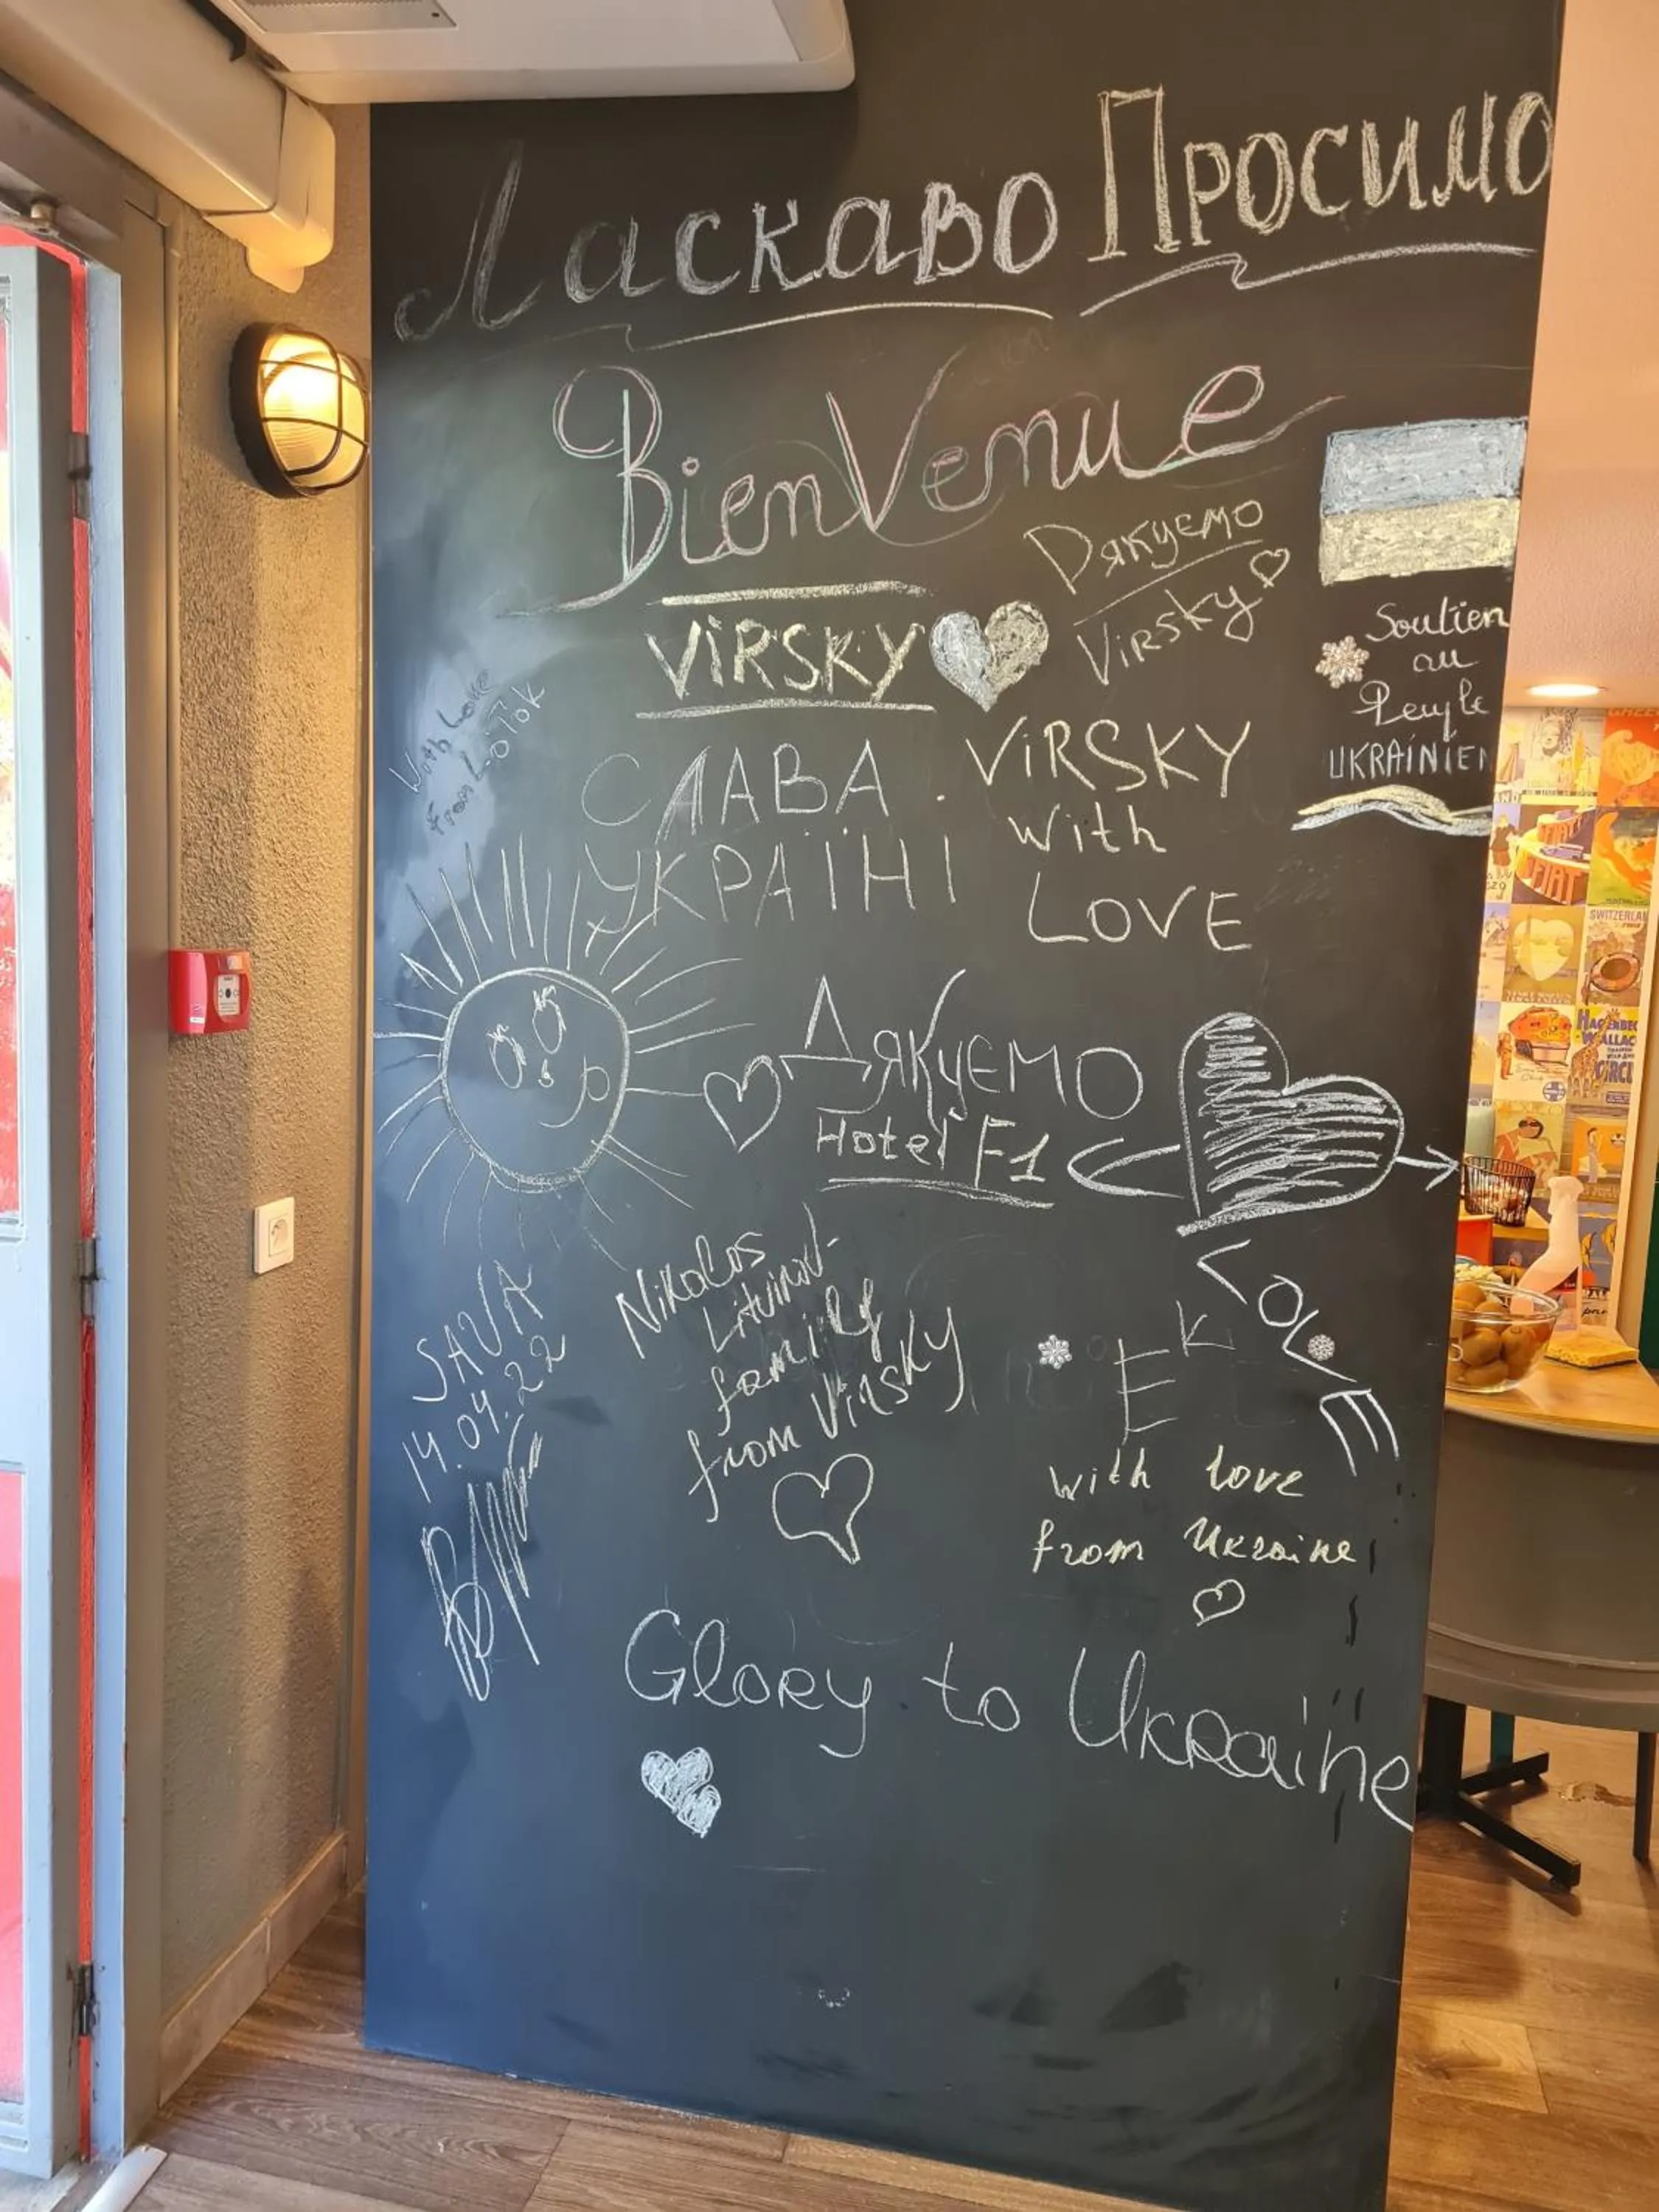 Ласкаво Просимо
BienVenue
Дякуємо
Virsky
VIRSKY
Soutien
au
Peuple
UKRAINIEN
With Love
from LOTOK
СЛАВА
УКРАЇНІ
VIRSKY
with
LOVE
Дякуємо
Hotel F1
LOVE
SAVA
14.04.22
Nikolas
Litvinov
family
from Virsky
EK
with love
from Ukraine
Glory to Ukraine
SWITZERLAND
HAGENBECK
WALLACE
CIRCUS